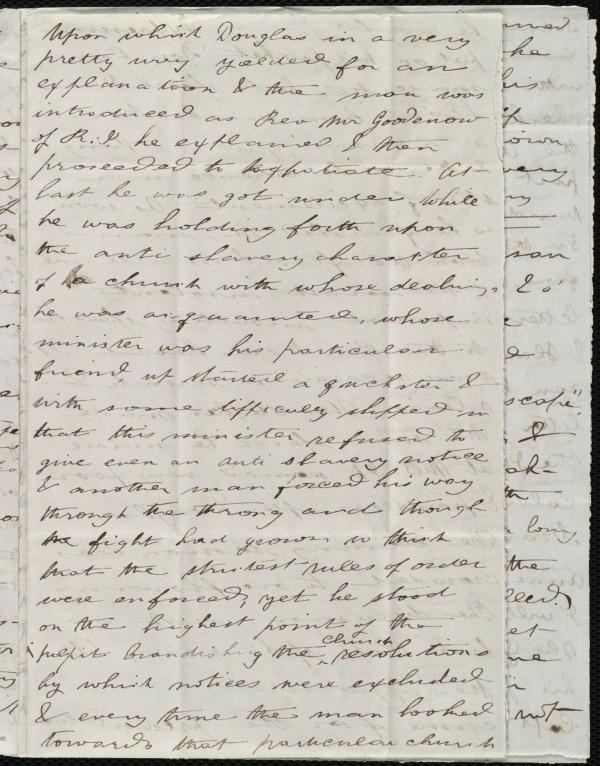 Upon which Douglas in a very
pretty way yielded for an
explanation & the man was
introduced as Rev Mr Goodenow
of R.I. he explained & then
proseeded to expatiate. At
last he was got under. While
he was holding forth upon
the anti slavery character
of a church with whose dealings
he was acquainted, whose
minister was his particular
friend, up started a quckster &
with some difficulty slipped in
that this minister refused to
give even an anti slavery notice
& another man forced his way
through the throng and though
the fight had grown so thick
that the strictest rules of order
were enforced, yet he stood
on the highest point of the
pulpit brandishing the church resolutions
by which notices were excluded
& every time the man looked
towards that particular church